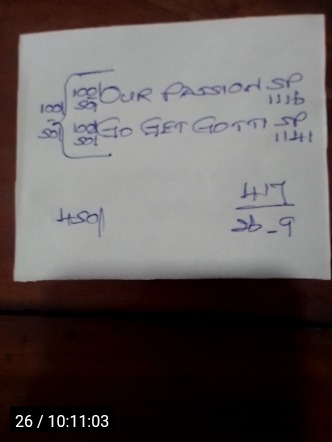 100/50/ 100/50/ OUR PASSION SP 1116
100/50/ GO GET GOTTI SP 1141
450/
417
26-9
26 / 10:11:03